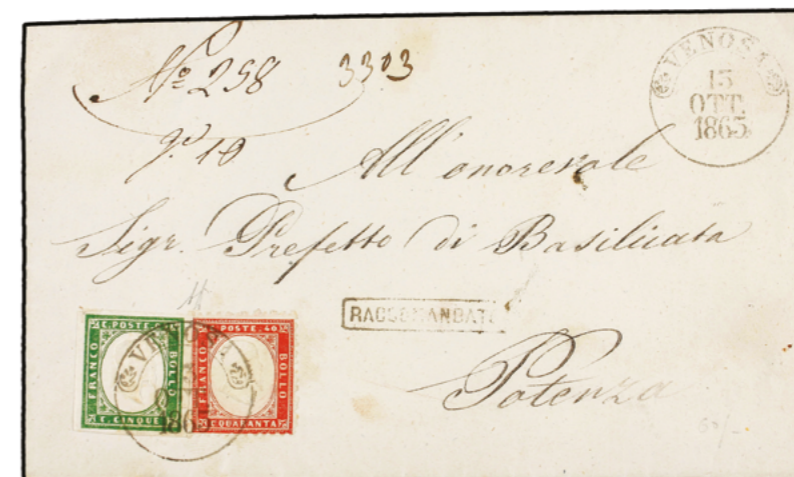 No 258 3303
VENOSA
13
OTT.
1865
All'onorevole
Sigr. Prefetto di Basilicata
RACCOMANDATA
Potenza
C. POSTE. C5
FRANCO
BOLLO
C. CINQUE
C. POSTE. 40
FRANCO
BOLLO
C. QUARANTA
VENOSA
OTT.
1865